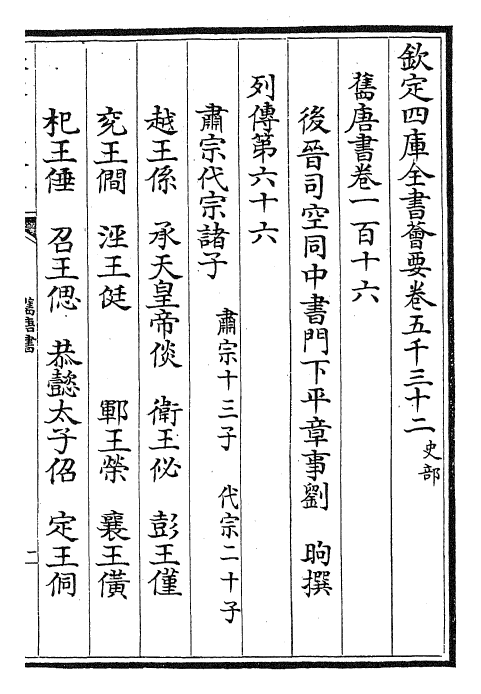 欽定四庫全書薈要卷五千三十二 史部
舊唐書卷一百十六
後晉司空同中書門下平章事劉 昫撰
列傳第六十六
肅宗代宗諸子 肅宗十三子 代宗二十子
越王係 承天皇帝倓 衛王佖 彭王僅
兖王僩 涇王侹 鄆王榮 襄王僙
杞王倕 召王偲 恭懿太子佋 定王侗
舊唐書